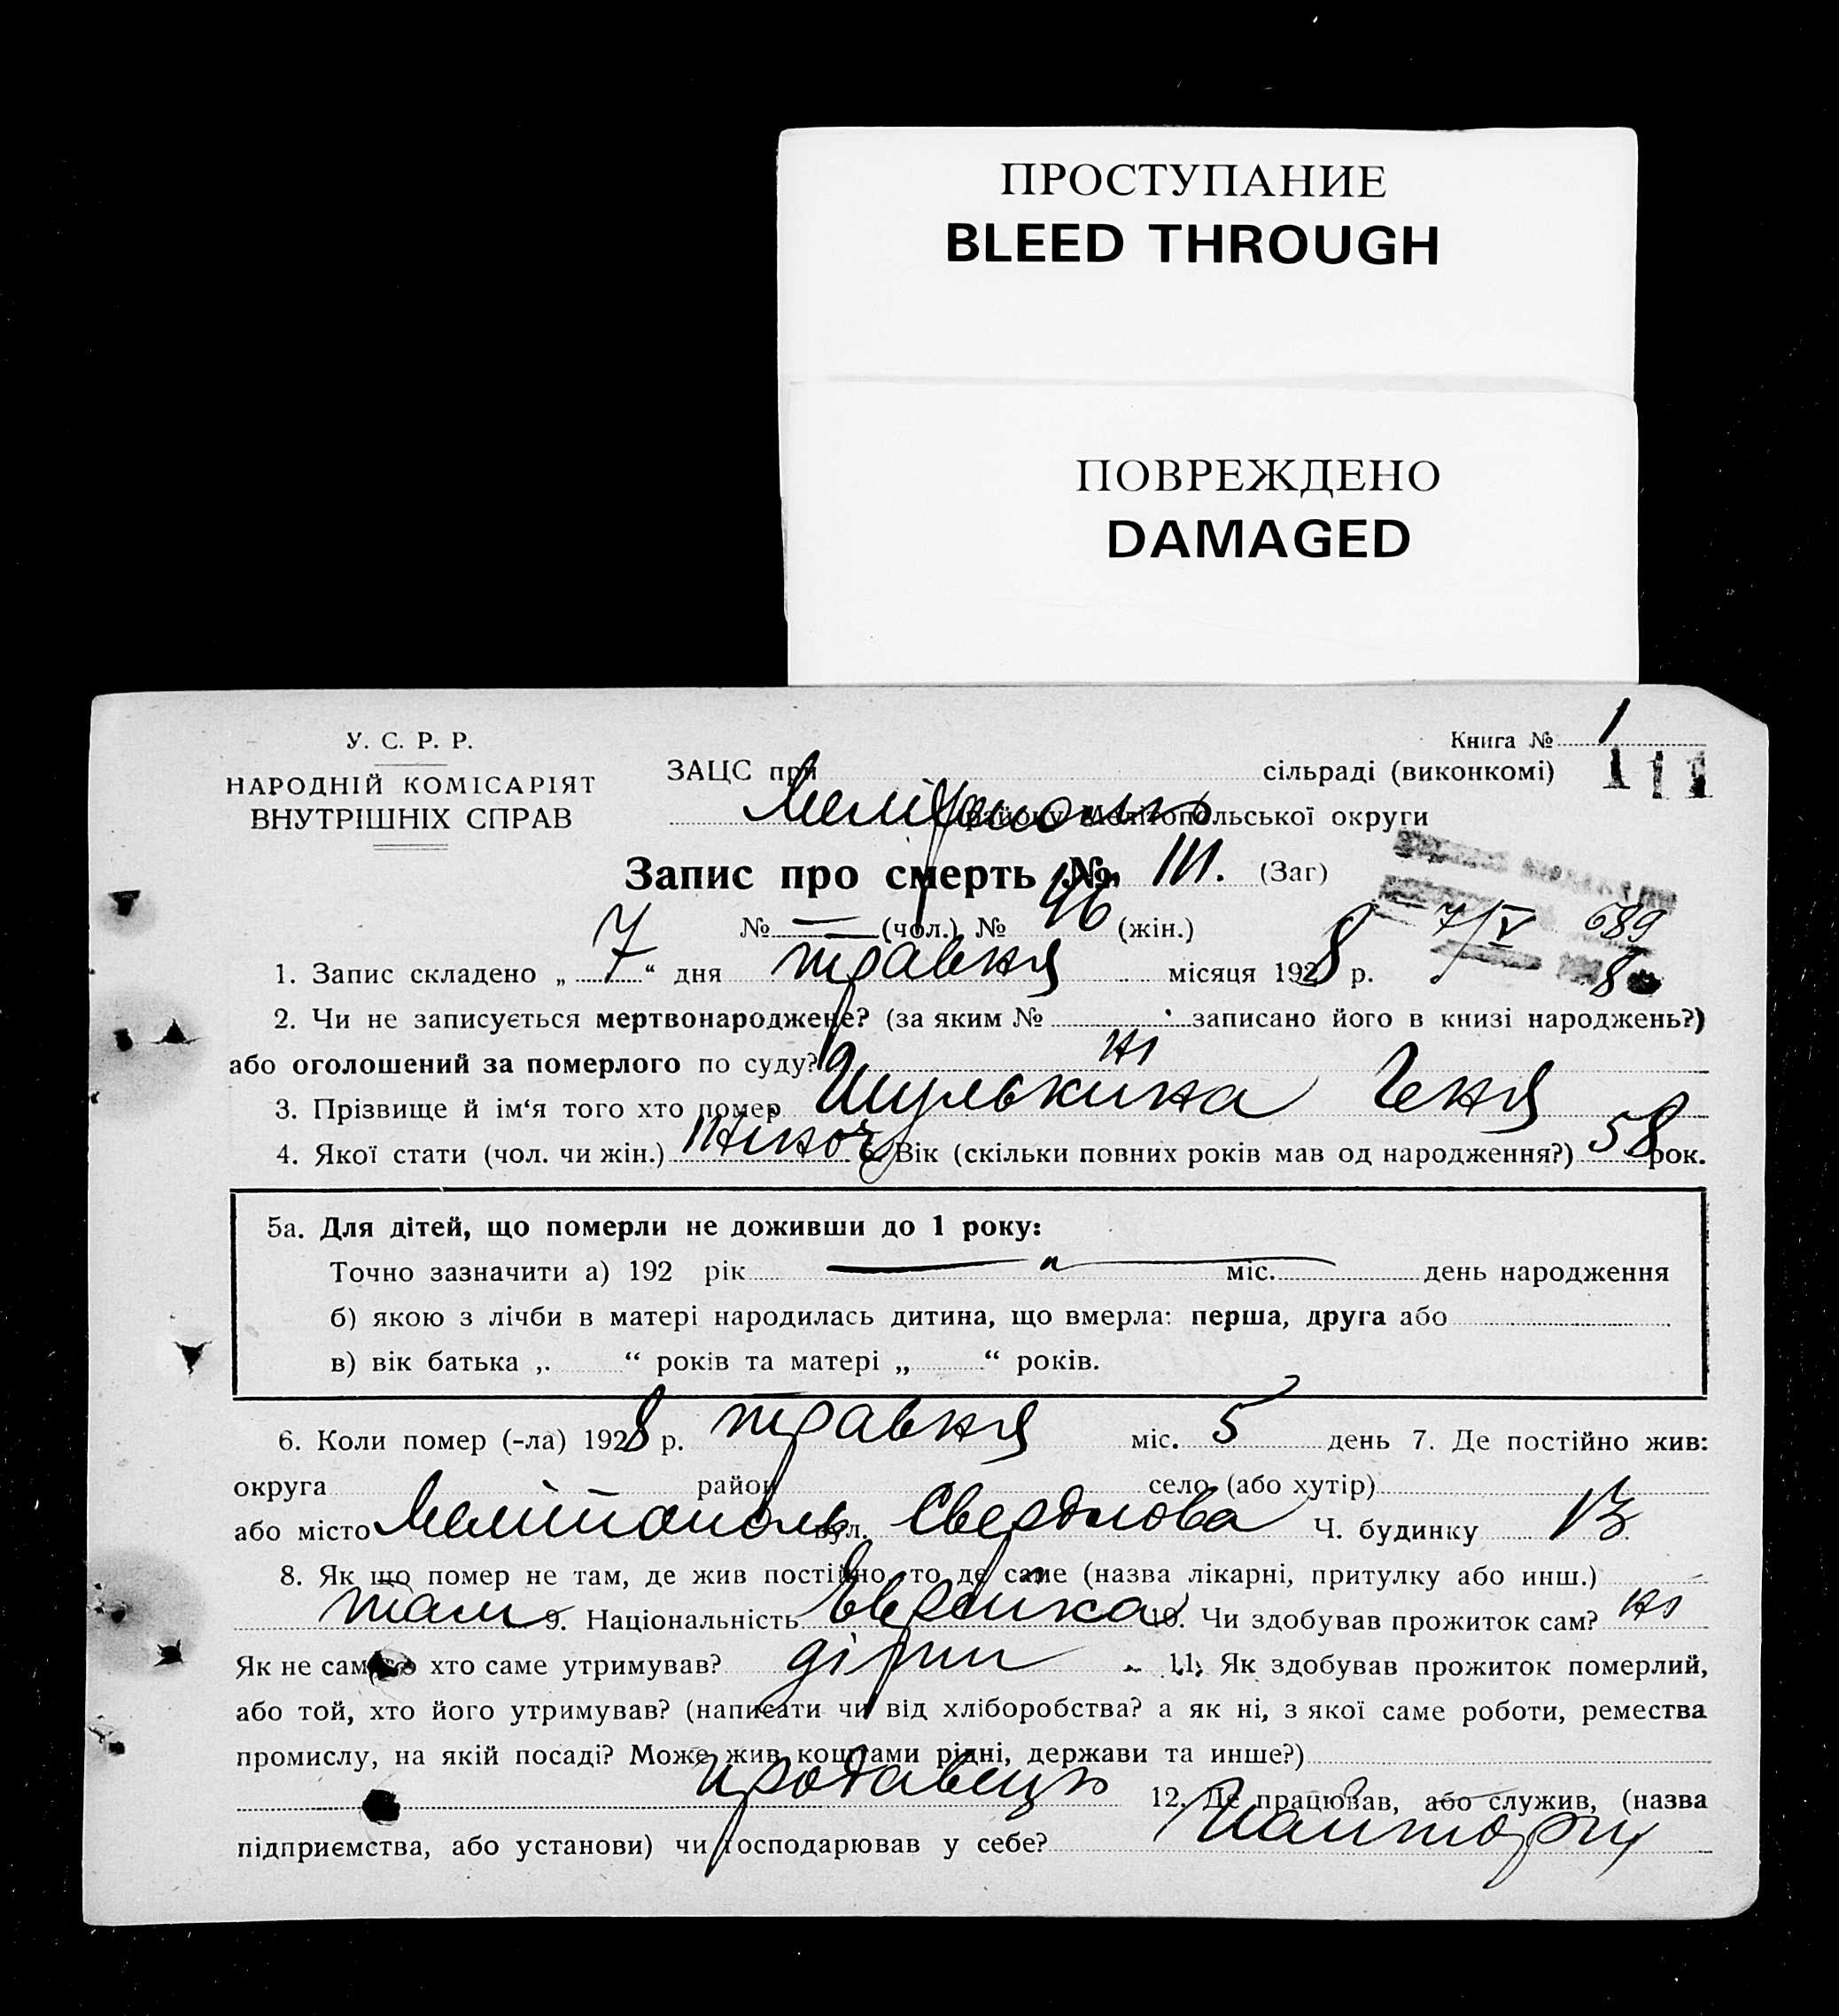 ПРОСТУПАНИЕ
BLEED THROUGH
ПОВРЕЖДЕНО
DAMAGED
У. С. Р. Р.
НАРОДНІЙ КОМІСАРІЯТ
ВНУТРІШНІХ СПРАВ
Книга № 1
ЗАЦС при сільраді (виконкомі) 111
району Мелітопольської округи
Запис про смерть № 111. (Заг)
№ — (чол.) № 46 (жін.)
7/V 689
8
1. Запис складено „ 7 “ дня травня місяця 1928 р.
2. Чи не записується мертвонароджене? (за яким № записано його в книзі народжень?)
або оголошений за померлого по суду? ні
3. Прізвище й ім‘я того хто помер Шулькина Геня
4. Якої стати (чол. чи жін.) жіноч 5. Вік (скільки повних років мав од народження?) 58 рок.
5а. Для дітей, що померли не доживши до 1 року:
Точно зазначити а) 192 рік міс. день народження
б) якою з лічби в матері народилась дитина, що вмерла: перша, друга або
в) вік батька „ “ років та матері „ “ років.
6. Коли помер (-ла) 1928 р. травня міс. 5 день 7. Де постійно жив:
округа район село (або хутір)
або місто Мелітополь вул. Свердлова Ч. будинку 13
8. Як що помер не там, де жив постійно, то де саме (назва лікарні, притулку або инш.)
там 9. Національність Еврейка 10. Чи здобував прожиток сам? ні
Як не сам, то хто саме утримував? діти 11. Як здобував прожиток померлий,
або той, хто його утримував? (написати чи від хліборобства? а як ні, з якої саме роботи, ремества
промислу, на якій посаді? Може жив коштами рідні, держави та инше?)
продавець 12. Де працював, або служив, (назва
підприємства, або установи) чи господарював у себе?